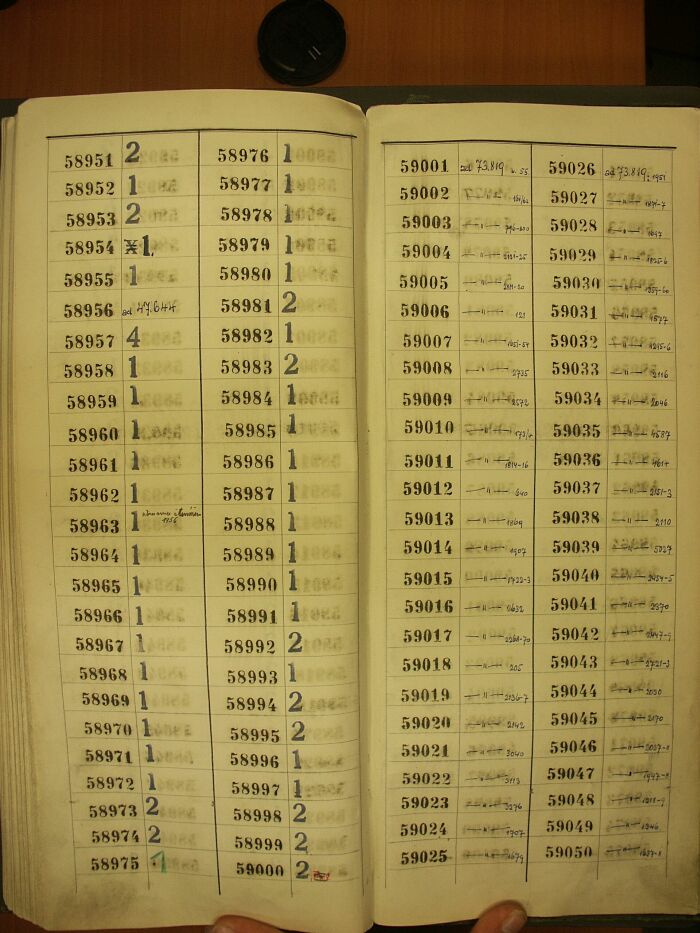 58951 2
58952 1
58953 2
58954 1
58955 1
58956 ad 47.644
58957 4
58958 1
58959 1
58960 1
58961 1
58962 1
58963 1 1956
58964 1
58965 1
58966 1
58967 1
58968 1
58969 1
58970 1
58971 1
58972 1
58973 2
58974 2
58975 1
58976 1
58977 1
58978 1
58979 1
58980 1
58981 2
58982 1
58983 2
58984 1
58985 1
58986 1
58987 1
58988 1
58989 1
58990 1
58991 1
58992 2
58993 1
58994 2
58995 2
58996 1
58997 1
58998 2
58999 2
59000 2
59001 ad 73.819
59002 —"—
59003 —"—
59004 —"—
59005 —"—
59006 —"— 121
59007 —"— 1051-54
59008 —"— 2735
59009 —"— 2572
59010 —"—
59011 —"— 1814-16
59012 —"— 640
59013 —"— 1869
59014 —"— 1907
59015 —"— 1722-3
59016 —"— 2632
59017 —"— 2268-70
59018 —"— 205
59019 —"— 2136-7
59020 —"— 2142
59021 —"— 3040
59022 —"— 3113
59023 —"— 3276
59024 —"— 1707
59025 —"— 1679
59026 ad 73.819: 1951
59027 —"—
59028 —"—
59029 —"— 1825-6
59030 —"— 1859-60
59031 —"— 4577
59032 —"— 4295-6
59033 —"— 2116
59034 —"— 2046
59035 —"— 4587
59036 —"—
59037 —"— 2151-3
59038 —"— 2110
59039 —"— 5027
59040 —"— 2454-5
59041 —"— 2370
59042 —"—
59043 —"— 2721-3
59044 —"— 2030
59045 —"— 2170
59046 —"— 2037-8
59047 —"— 1947-8
59048 —"—
59049 —"— 1946
59050 —"— 1637-8